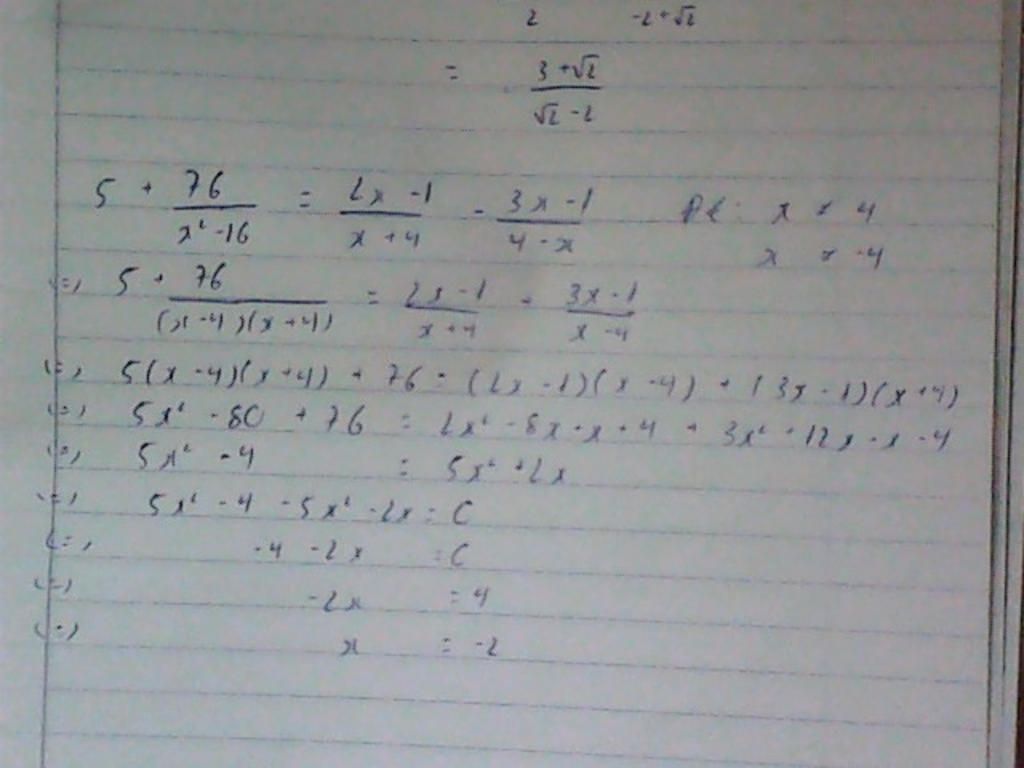 2    -2+√2
= (3+√2)/(√2-2)
5 + 76/(x²-16) = (2x-1)/(x+4) - (3x-1)/(4-x)    x ≠ 4
x ≠ -4
(=) 5 + 76/((x-4)(x+4)) = (2x-1)/(x+4) + (3x-1)/(x-4)
(=) 5(x-4)(x+4) + 76 = (2x-1)(x-4) + (3x-1)(x+4)
(=) 5x² - 80 + 76 = 2x² - 8x - x + 4 + 3x² + 12x - x - 4
(=) 5x² - 4 = 5x² + 2x
(=) 5x² - 4 - 5x² - 2x = 0
(=) -4 - 2x = 0
(=) -2x = 4
(=) x = -2